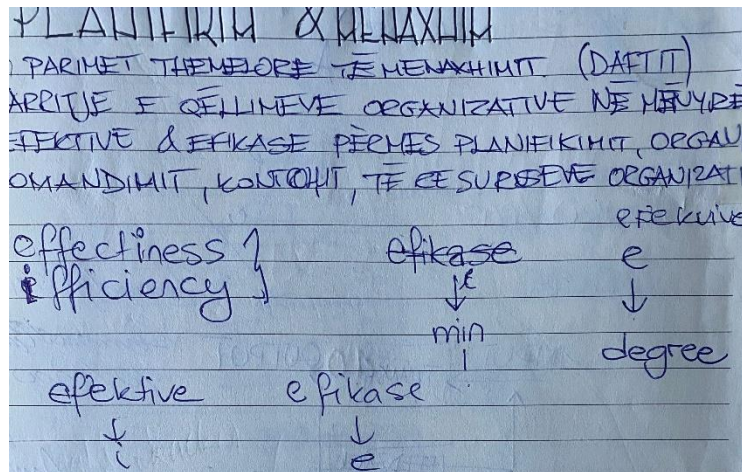 PLANIFIKIM & MENAXHIM
PARIMET THEMELORE TË MENAXHIMIT (DAFTIT)
ARRITJE E QËLLIMEVE ORGANIZATIVE NË MËNYRË
EFEKTIVE & EFIKASE PËRMES PLANIFIKIMIT, ORGAN
OMANDIMIT, KONTROLLIT, TË RESURSEVE ORGANIZATI
efektive
effectiness }
efficiency }
efikase e
↓ ↓
min degree
efektive efikase
↓ ↓
i e